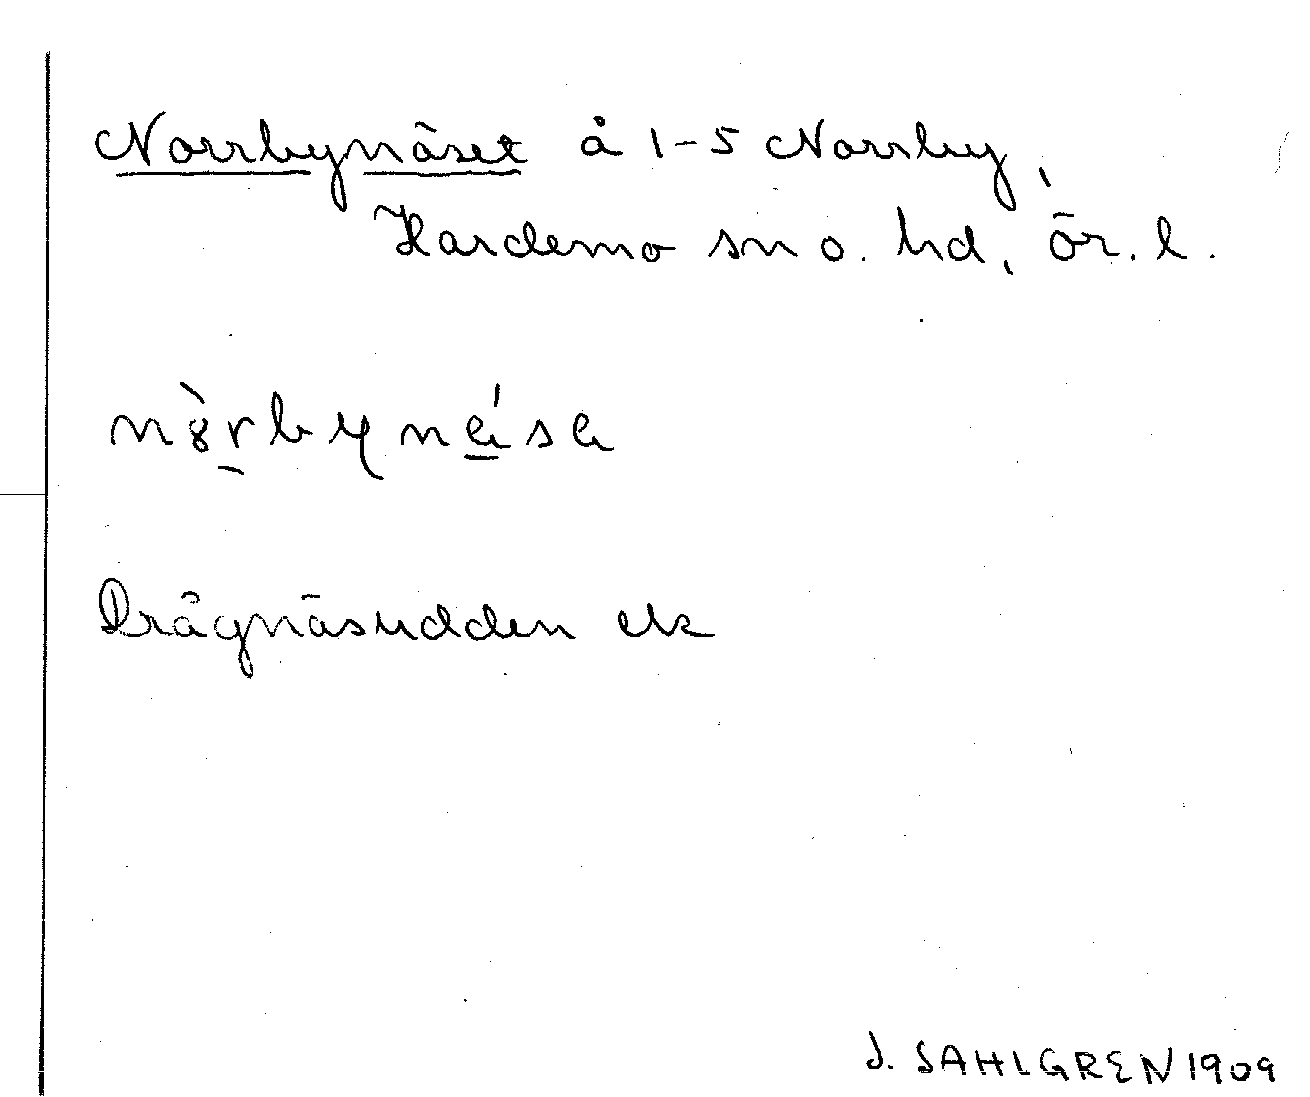 Norrbynäset å 1-5 Norrby,
Hardemo sn o. hd, Ör. l.
Drågnäsudden ek
J. SAHLGREN 1909